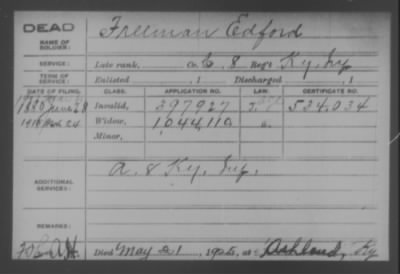 DEAD
NAME OF SOLDIER:
Freeman Edford
SERVICE:
Late rank, Co. E, 8 Reg't Ky. Inf.
TERM OF SERVICE:
Enlisted , 1 Discharged , 1
DATE OF FILING. CLASS. APPLICATION NO. LAW. CERTIFICATE NO.
1880 June 29 Invalid, 397927 534,034
Widow, 1,044,110
Minor,
ADDITIONAL SERVICES:
A. 8 Ky. Inf.
REMARKS:
Died May 21, 1925, at Ashland, Ky